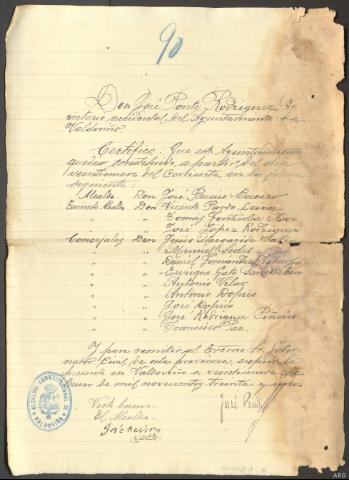 90
Don José Ponte Rodriguez, Se
cretario accidental del Ayuntamiento de
Valdoviño.
Certifico: Que este Ayuntamiento
quedó constituido, a partir del dia
veintinueve del corriente, en la forma
siguiente:
Alcalde Don José
Teniente Alcalde Don Vicente Pardo Leira
" " Tomás
" " José López Rodriguez
Concejales Don Jesús
" " Manuel Sedes
" " Daniel Fernandez
" " Enrique Gato
" " Antonio Vilar
" " Antonio Dopico
" " José Dopico
" " José Rodriguez Piñeiro
" " Francisco Paz.
Y para remitir al Excmo. Sr. Gober
nador Civil de esta provincia, expido la
presente en Valdoviño a veintinueve de
de mil novecientos treinta y
Visto bueno:
El Alcalde,
José
ALCALDIA CONSTITUCIONAL DE VALDOVIÑO
ARG